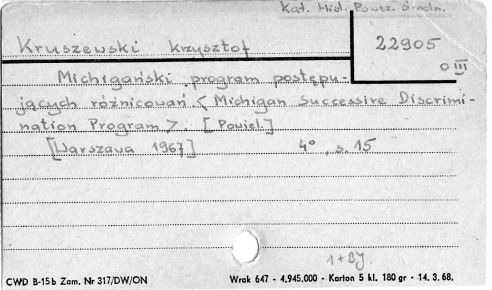 Kat. Hist. Powsz. Śmoln.
Kruszewski Krzysztof
22905
O III
Michigański program postępu-
jących różnicowań. < Michigan Successive Discrimi-
nation Program >. [Powiel.]
[Warszawa 1967] 4°, s. 15
1+BJ.
CWD B-15b Zam. Nr 317/DW/ON Wrak 647 - 4.945.000 - Karton 5 kl. 180 gr - 14. 3. 68.